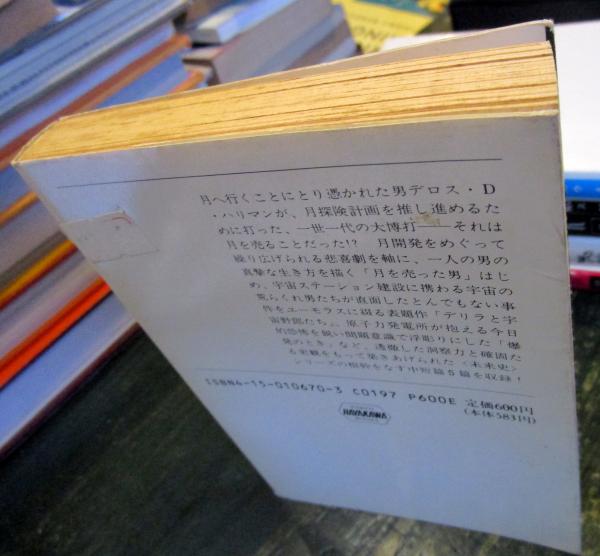 月へ行くことにとり憑かれた男デロス・D
・ハリマンが、月探険計画を推し進めるた
めに打った、一世一代の大博打――それは
月を売ることだった!? 月開発をめぐって
繰り広げられる悲喜劇を軸に、一人の男の
真摯な生き方を描く「月を売った男」はじ
め、宇宙ステーション建設に携わる宇宙の
荒らくれ男たちが直面したとんでもない事
件をユーモラスに綴る表題作「デリラと宇
宙野郎たち」、原子力発電所が抱える今日
的恐怖を鋭い問題意識で浮彫りにした「爆
発のとき」など、透徹した洞察力と確固た
る史観をもって築きあげられた〈未来史〉
シリーズの根幹をなす中短篇5篇を収録!
ISBN4-15-010670-3 C0197 P600E 定価600円
(本体583円)
HAYAKAWA